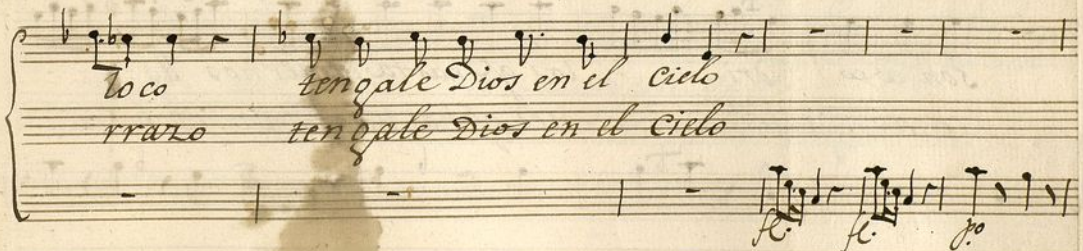 loco tengale Dios en el Cielo
rrazo tengale Dios en el Cielo
fe. fe. po